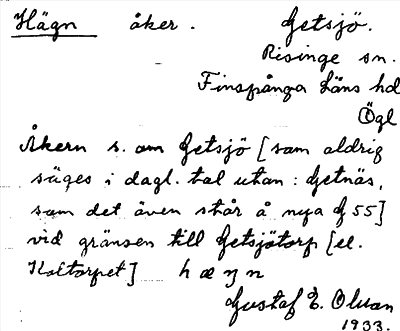 Hägn åker. Getsjö.
Risinge sn.
Finspånga läns hd
Ögl
Åkern s. om Getsjö [som aldrig
säges i dagl. tal utan: Getnäs,
som det även står å nya G 55]
vid gränsen till Getsjötorp [el.
Koltorpet] hæŋn
Gustaf E. Olsson
1933.